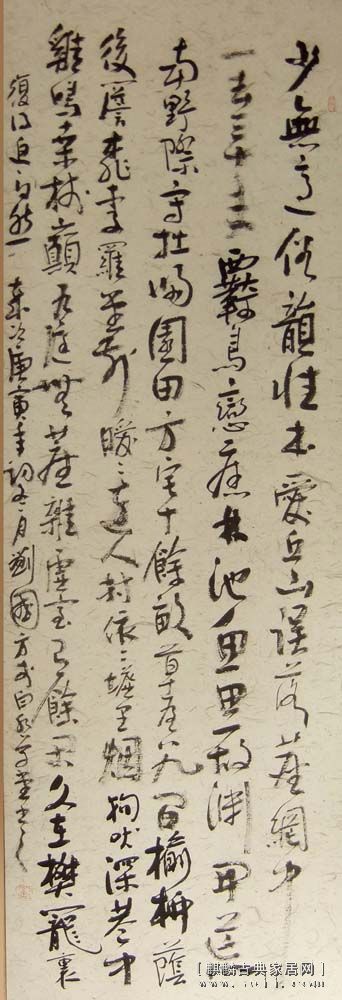 少無適俗韻性本愛丘山誤落塵網中
一去三十年羈鳥戀舊林池魚思故淵開荒
南野際守拙歸園田方宅十餘畝草屋八九間榆柳蔭
後簷桃李羅堂前暧〻遠人村依〻墟里烟狗吠深巷中
雞鳴桑樹顛戶庭無塵雜虛室有餘閒久在樊籠裏
復得返自然 歲次庚寅年初冬月劉國方於白草堂書
[麒麟古典家居网]